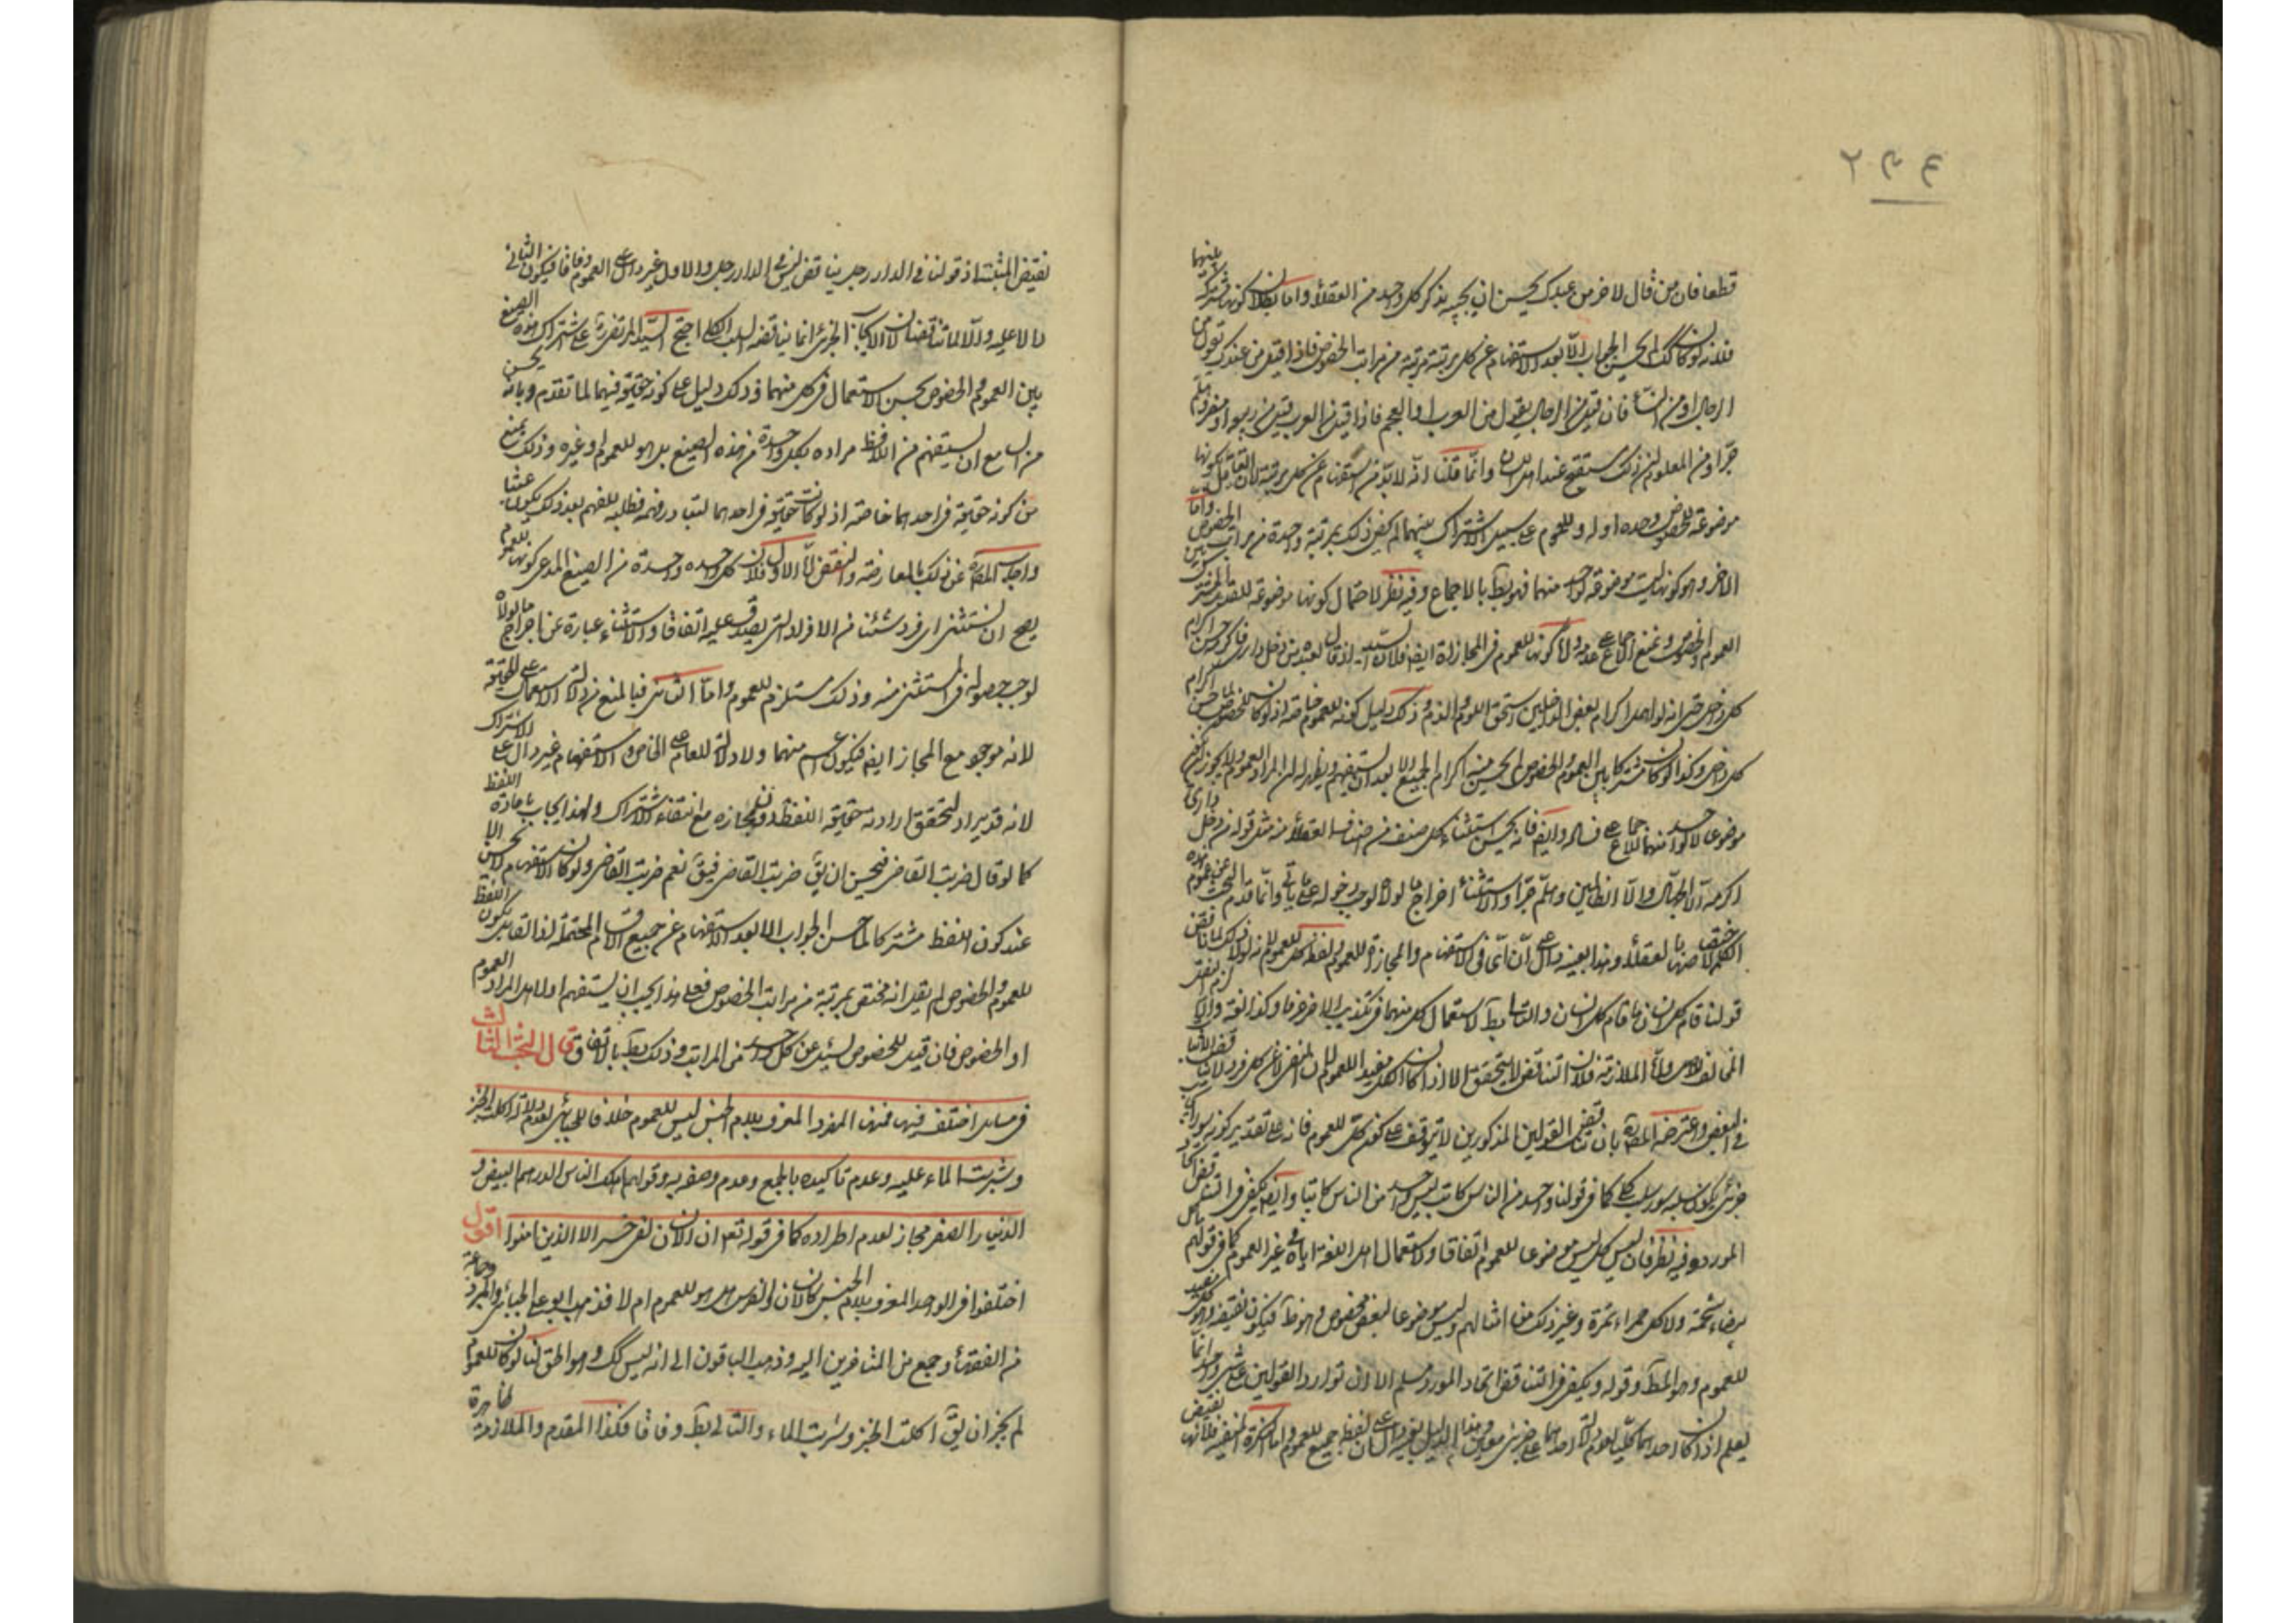 قطعا فان من قال لاخر من عبدك يحسن ان يجيبه بذكر كل واحد من العقلاء واما بطلان كونها مشتركة بينهما
فلانه لو كان كك لما حسن الجواب الا بعد الاستفهام عن كل مرتبة مرتبة من مراتب الخصوص فاذا قيل من عندك تقول من
الرجال او من النساء فان قيل من الرجال يقول من العرب او العجم فاذا قيل من العرب قيل من ربيعة او مضر وهلم
جرا ومن المعلوم ان ذلك مستقبح عند اهل اللسان وانما قلنا انه لا بد من استفهام عن كل مرتبة لان القائل بكونها
موضوعة للخصوص وحده اوله وللعموم على سبيل الاشتراك بينهما لم يخص ذلك بمرتبة واحدة من مراتب الخصوص واما
الاخر وهو كونها ليست موضوعة لواحد منهما فهو بط بالاجماع وفيه نظر لاحتمال كونها موضوعة للقدر المشترك بين
العموم والخصوص ونمنع الاجماع على عدمه واما كونها للعموم فى المجازاة ايض فلان السيد اذا قال لعبده من دخل دارى فاكرمه حسن اكرام
كل داخل حتى انه لو اهمل اكرام بعض الداخلين استحق اللوم والذم وذلك دليل كونه للعموم خاصة اذ لو كان للخصوص لما حسن اكرام
كل داخل وكذا لو كان مشتركا بين العموم والخصوص لم يحسن منه اكرام الجميع الا بعد ان يستفهم ويظهر له ان المراد العموم ولا يجوز ان يكون
موضوعا لا لواحد منهما للاجماع على فساده وايض فانه يحسن استثناء كل صنف من اصناف العقلاء من مثل قوله من دخل دارى
اكرمه الا الجهال والا الظالمين وهلم جرا والاستثناء اخراج ما لولاه لوجب دخوله على ما ياتى وانما قدم البحث عن عموم هذه
الكلم لاختصاصها بالعقلاء وهذا بعينه دال على ان اى فى الاستفهام والمجازاة للعموم ولفظ كل للعموم لانه لولا ذلك لما ناقض
قولنا قام كل انسان ما قام كل انسان والتالى بط لاستعمال كل منهما فى تكذيب الاخر عرفا وكذا لغة والا لزم النقل
المخالف للاصل واما الملازمة فلان التناقض لا يتحقق الا اذا كان الكل مفيدا للعموم لان النفى عن كل فرد لا يناقض الاثبات
فى البعض واعترضه المصره بان تناقض القولين المذكورين لا يتوقف على كون كل للعموم فانه على تقدير كونه سور ايجاب
جزئى يكون سلبه سور سلب كلى كما فى قولنا واحد من الناس كاتب ليس واحد من الناس كاتبا وايض يكفى فى التناقض اتحاد
المورد وفيه نظر فان ليس كل ليس موضوعا للعموم اتفاقا ولاستعمال اهل اللغة اياه فى غير العموم كما فى قولهم ما كل
بيضاء شحمة ولا كل حمراء تمرة وغير ذلك من امثالهم وليس موضوعا لبعض مخصوص وهو ظ فيكون نقيضه وهو كل مفيدا
للعموم وهو المط وقوله ويكفى فى التناقض اتحاد المورد مسلم الا ان توارد القولين على شىء واحد انما
يعلم اذا كان احدهما كليا لعدم دلالة احدهما على جزئى معين وهذا الدليل بعينه دال على ان لفظ جميع للعموم واما النكرة المنفية فلانها نقيض
نقيض المثبتة اذ قولنا فى الدار رجل يناقض ليس فى الدار رجل والاول غير دال على العموم وفاقا فيكون الثانى
دالا عليه والا لما تناقضا لان الايجاب الجزئى انما يناقضه السلب الكلى احتج السيد المرتضى ره على اشتراك هذه الصيغ
بين العموم والخصوص بحسن الاستعمال فى كل منهما وذلك دليل على كونه حقيقة فيهما لما تقدم وبانه يحسن
من السامع ان يستفهم من اللافظ مراده بكل واحدة من هذه الصيغ هل هو للعموم او غيره وذلك يمنع
من كونه حقيقة فى احدهما خاصة اذ لو كانت حقيقة فى احدهما لتبادر فهمه فطلبه للفهم بعد ذلك يكون عبثا
واجاب المصره عن ذلك بالمعارضة والنقض اما الاول فلان كل واحده واحدة من الصيغ المدعى كونها للعموم
يصح ان يستثنى اى فرد شئنا من الافراد التى يصدق عليه اتفاقا والاستثناء عبارة عن اخراج ما لولاه
لوجب حصوله فى المستثنى منه وذلك مستلزم للعموم واما الثانى فبالمنع من دلالة الاستعمال على الحقيقة
لانه موجود مع المجاز ايض فيكون اعم منهما ولا دلالة للعام على الخاص والاستفهام غير دال على الاشتراك
لانه قد يراد لتحقق ارادة حقيقة اللفظ دون مجازه مع انتفاء الاشتراك ولهذا يجاب باعادة اللفظ
كما لو قال ضربت القاضى فيحسن ان يق ضربت القاضى فيق نعم ضربت القاضى ولو كان الاستفهام لا يحسن الا
عند كون اللفظ مشتركا لما حسن الجواب الا بعد الاستفهام عن جميع الاقسام المحتملة اذ القائل بكون اللفظ
للعموم والخصوص لم يقل انه مختص بمرتبة من مراتب الخصوص فعلى هذا يجب ان يستفهم اولا هل المراد العموم
او الخصوص فان قيل للخصوص يسئل عن كل واحد من المراتب وذلك بط بالاتفاق قال البحث الثالث
فى مسائل اختلف فيها فمنها المفرد المعرف بلام الجنس ليس للعموم خلافا للجبائى لعدم دلالة اكلت الخبز
وشربت الماء عليه وعدم تاكيده بالجمع وعدم وصفه به وقولهم اهلك الناس الدرهم البيض و
الدنيار الصفر مجاز لعدم اطراده كما فى قوله تع ان الانسان لفى خسر الا الذين امنوا اقول
اختلفوا فى الواحد المعرف بلام الجنس كالانسان والفرس هل هو للعموم ام لا فذهب ابو على الجبائى والمبرد وجماعة
من الفقهاء وجمع من المتاخرين اليه وذهب الباقون الى انه ليس كك وهو الحق لنا لو كان للعموم
لم يجز ان يق اكلت الخبز وشربت الماء والتالى بط وفاقا فكذا المقدم والملازمة ظاهرة